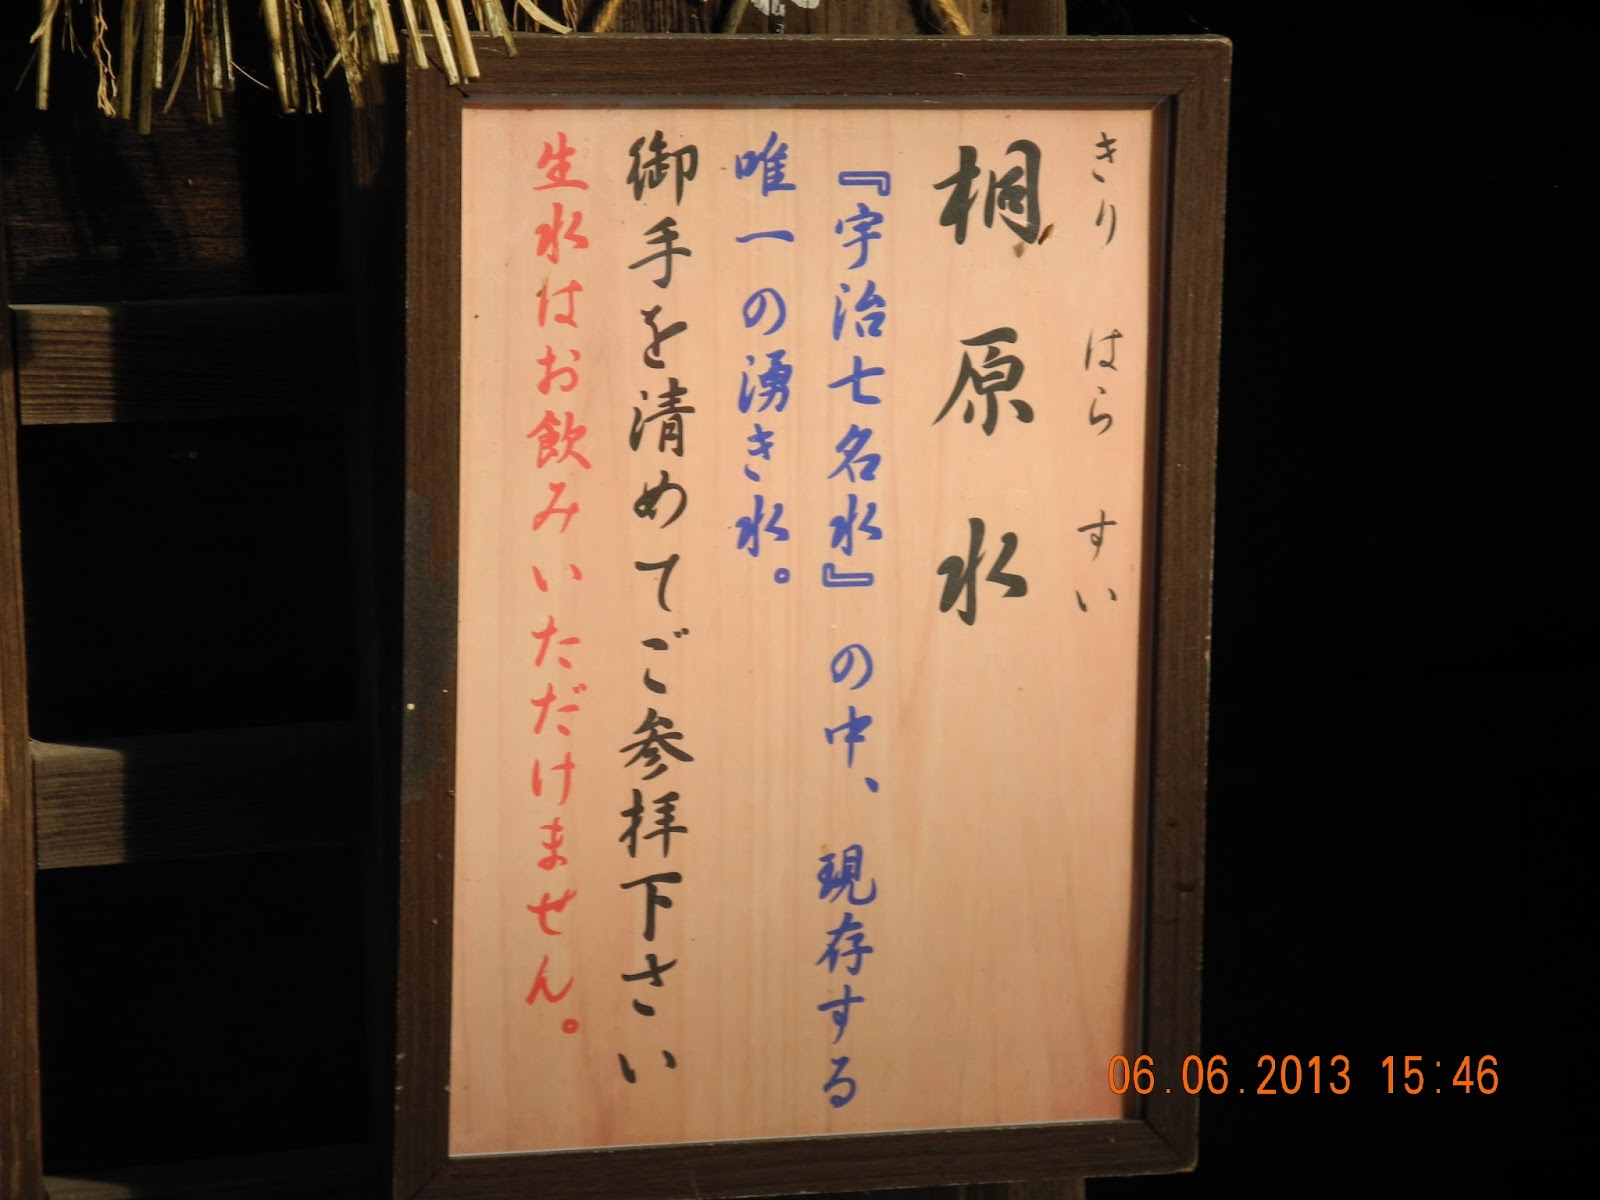 きり はら すい
桐原水
『宇治七名水』の中、現存する
唯一の湧き水。
御手を清めてご参拝下さい
生水はお飲みいただけません。
06.06.2013 15:46